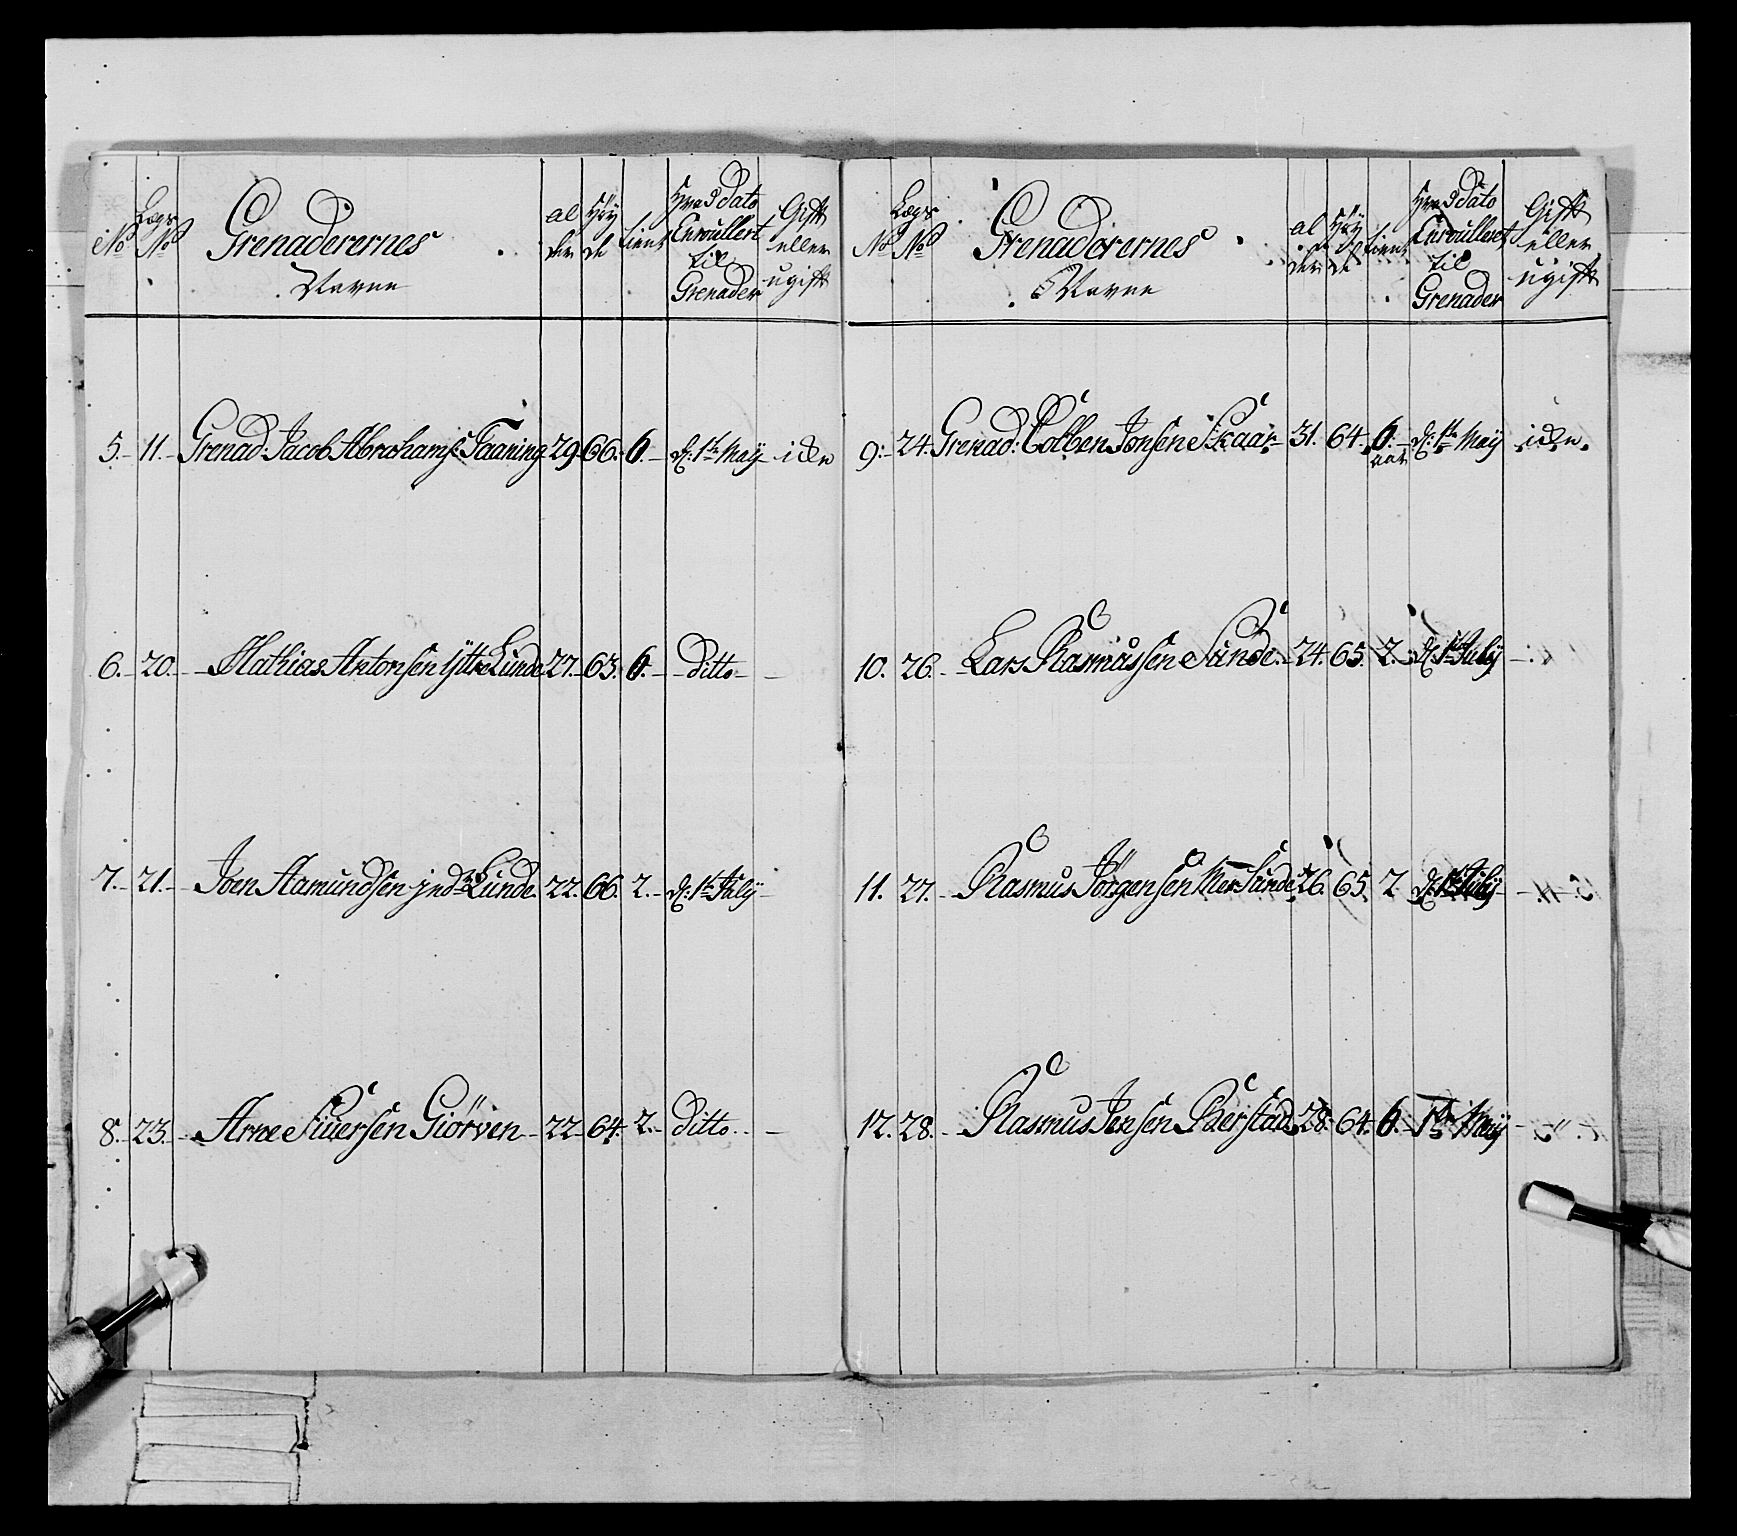 No
Lægs No
Grenaderernes Navne
al der
Høy de
tient
Hvad dato Enroullert til Grenader
Gift eller ugift
5. 11. Grenad. Jacob Abrahams: Taaning 29. 66. 6. d: 1te Maÿ
6. 20. Mathias Antonsen ÿttre Lunde 27. 63. 6. ditto
7. 21. Joen Aamundsen jndre Lunde 22. 66. 2. d: 1te Julÿ
8. 23. Arne Siuersen Giörven 22. 64. 2. ditto
No
Lægs No
Grenaderernes Navne
al der
Høy de
tient
Hvad dato Enroulleret til Grenader
Gift eller ugift
9. 24. Grenad: Colben Jonsen Skaar 31. 64. 6. aar d: 1te Maÿ
10. 26. Lars Rasmussen Sunde 24. 65. 2. d: 1te Julÿ
11. 27. Rasmus Jörgensen Mer Sunde 26. 65. 2 d: 1te Julÿ
12. 28. Rasmus Jensen Berstad 28. 64. 6. 1te Maÿ